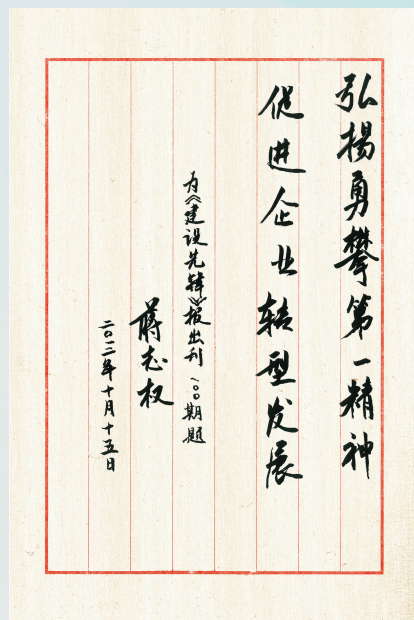 弘揚勇攀第一精神
促进企业转型发展
为《建设先锋》报出刊一〇〇期题
蒋志权
二〇一二年十月十五日